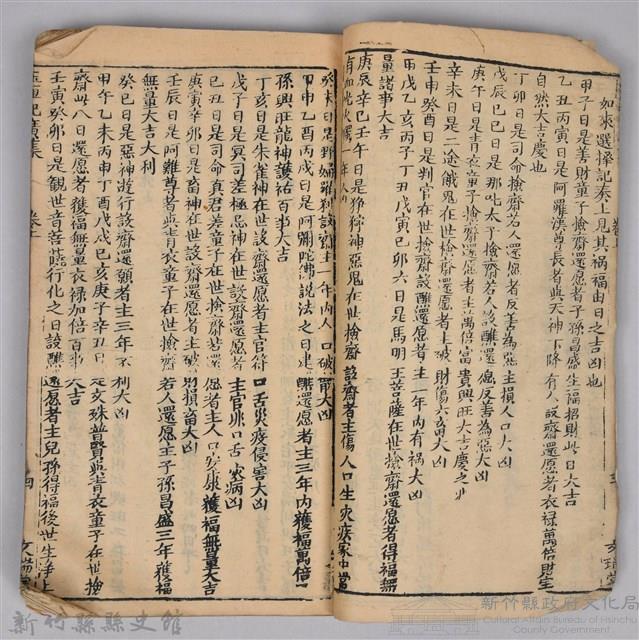 如來選擇記奏上見其禍福由日之吉凶也
甲子日是善財童子撿齋還愿者子孫昌盛生福招財此日大吉
乙丑丙寅日是阿羅漢尊長者與天神下降有人設齋還愿者衣祿萬倍財生
自然大吉慶也
丁卯日是司命撿齋若人還愿者反善為惡主損人口大凶
戊辰己巳日是那吒太子撿齋若人設醮還愿反善為惡大凶
庚午日是青衣童子撿齋還愿者主萬倍富貴興旺大吉慶之
辛未日是二途餓鬼在世撿齋還愿者主破財傷六畜大凶
壬申癸酉日是判官在世撿齋設醮還愿者主一年內有禍大凶
甲戌乙亥丙子丁丑戊寅己卯六日是馬明王菩薩在世撿齋還愿者得福無
量諸事大吉
庚辰辛巳壬午日是猙獰神惡鬼在世撿齋設齋者主傷人口生災疾家中當
癸未日是野婦羅剎設齋主一年內人口破財大凶
甲申乙酉丙戌日是阿彌陀佛說法之日建醮還愿者主三年內獲福萬倍
孫興旺龍神護祐百事大吉
丁亥日是朱雀神在世設齋還愿者主官符口舌災疫侵害大凶
戊子日是冥司差極忌神在世設齋還愿者主官非口舌災病凶
庚寅辛卯日是畜神在世設齋還愿者主破財損畜大凶
壬辰日是阿難尊者與青衣童子在世撿齋若人還愿主子孫昌盛三年獲福
無量大吉大利
癸巳日是惡神遊行設齋還願者主三年不利大凶
甲午乙未丙申丁酉戊戌己亥庚子辛丑日是文殊普賢與青衣童子在世撿
齋此八日還愿者獲福無量衣祿加倍百事大吉
壬寅癸卯日是觀世音菩薩行化之日設醮還愿者主兒孫得福後世生淨土
卷上
文瑞堂
新竹縣縣史館
新竹縣政府文化局
Cultural Affairs Bureau of Hsinchu
County Government